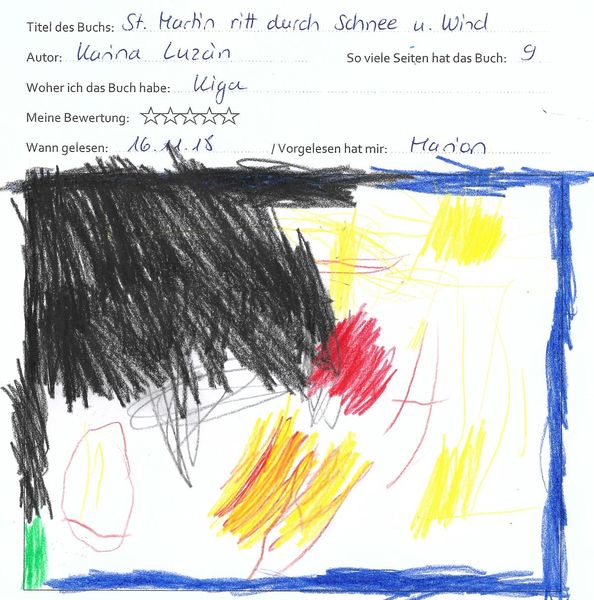 Titel des Buchs: St. Martin ritt durch Schnee u. Wind
Autor: Karina Luzán So viele Seiten hat das Buch: 9
Woher ich das Buch habe: Kiga
Meine Bewertung: ☆☆☆☆☆
Wann gelesen: 16.11.18 / Vorgelesen hat mir: Marion